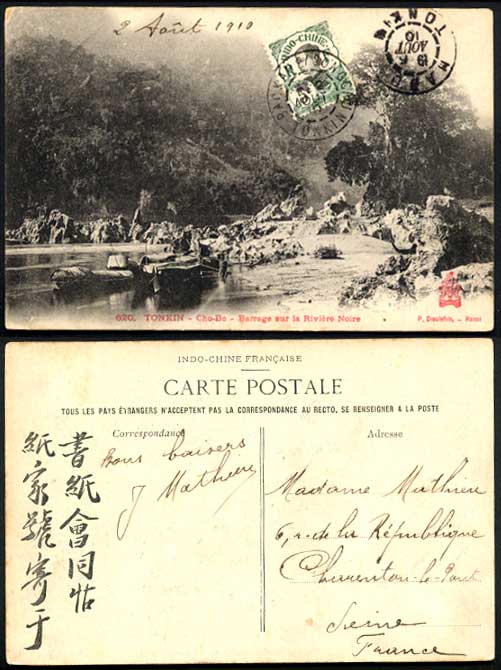 2 Août 1910
INDO-CHINE
TONKIN
620. TONKIN - Cho-Bo - Barrage sur la Rivière Noire
P. Dieulefils, - Hanoi
INDO-CHINE FRANÇAISE
CARTE POSTALE
TOUS LES PAYS ÉTRANGERS N'ACCEPTENT PAS LA CORRESPONDANCE AU RECTO, SE RENSEIGNER A LA POSTE
Correspondance
Bons baisers
J Mathieu
Adresse
Madame Mathieu
6, r. de la République
Charenton-le-Pont
Seine
France
書紙會同帖
紙家號寄于